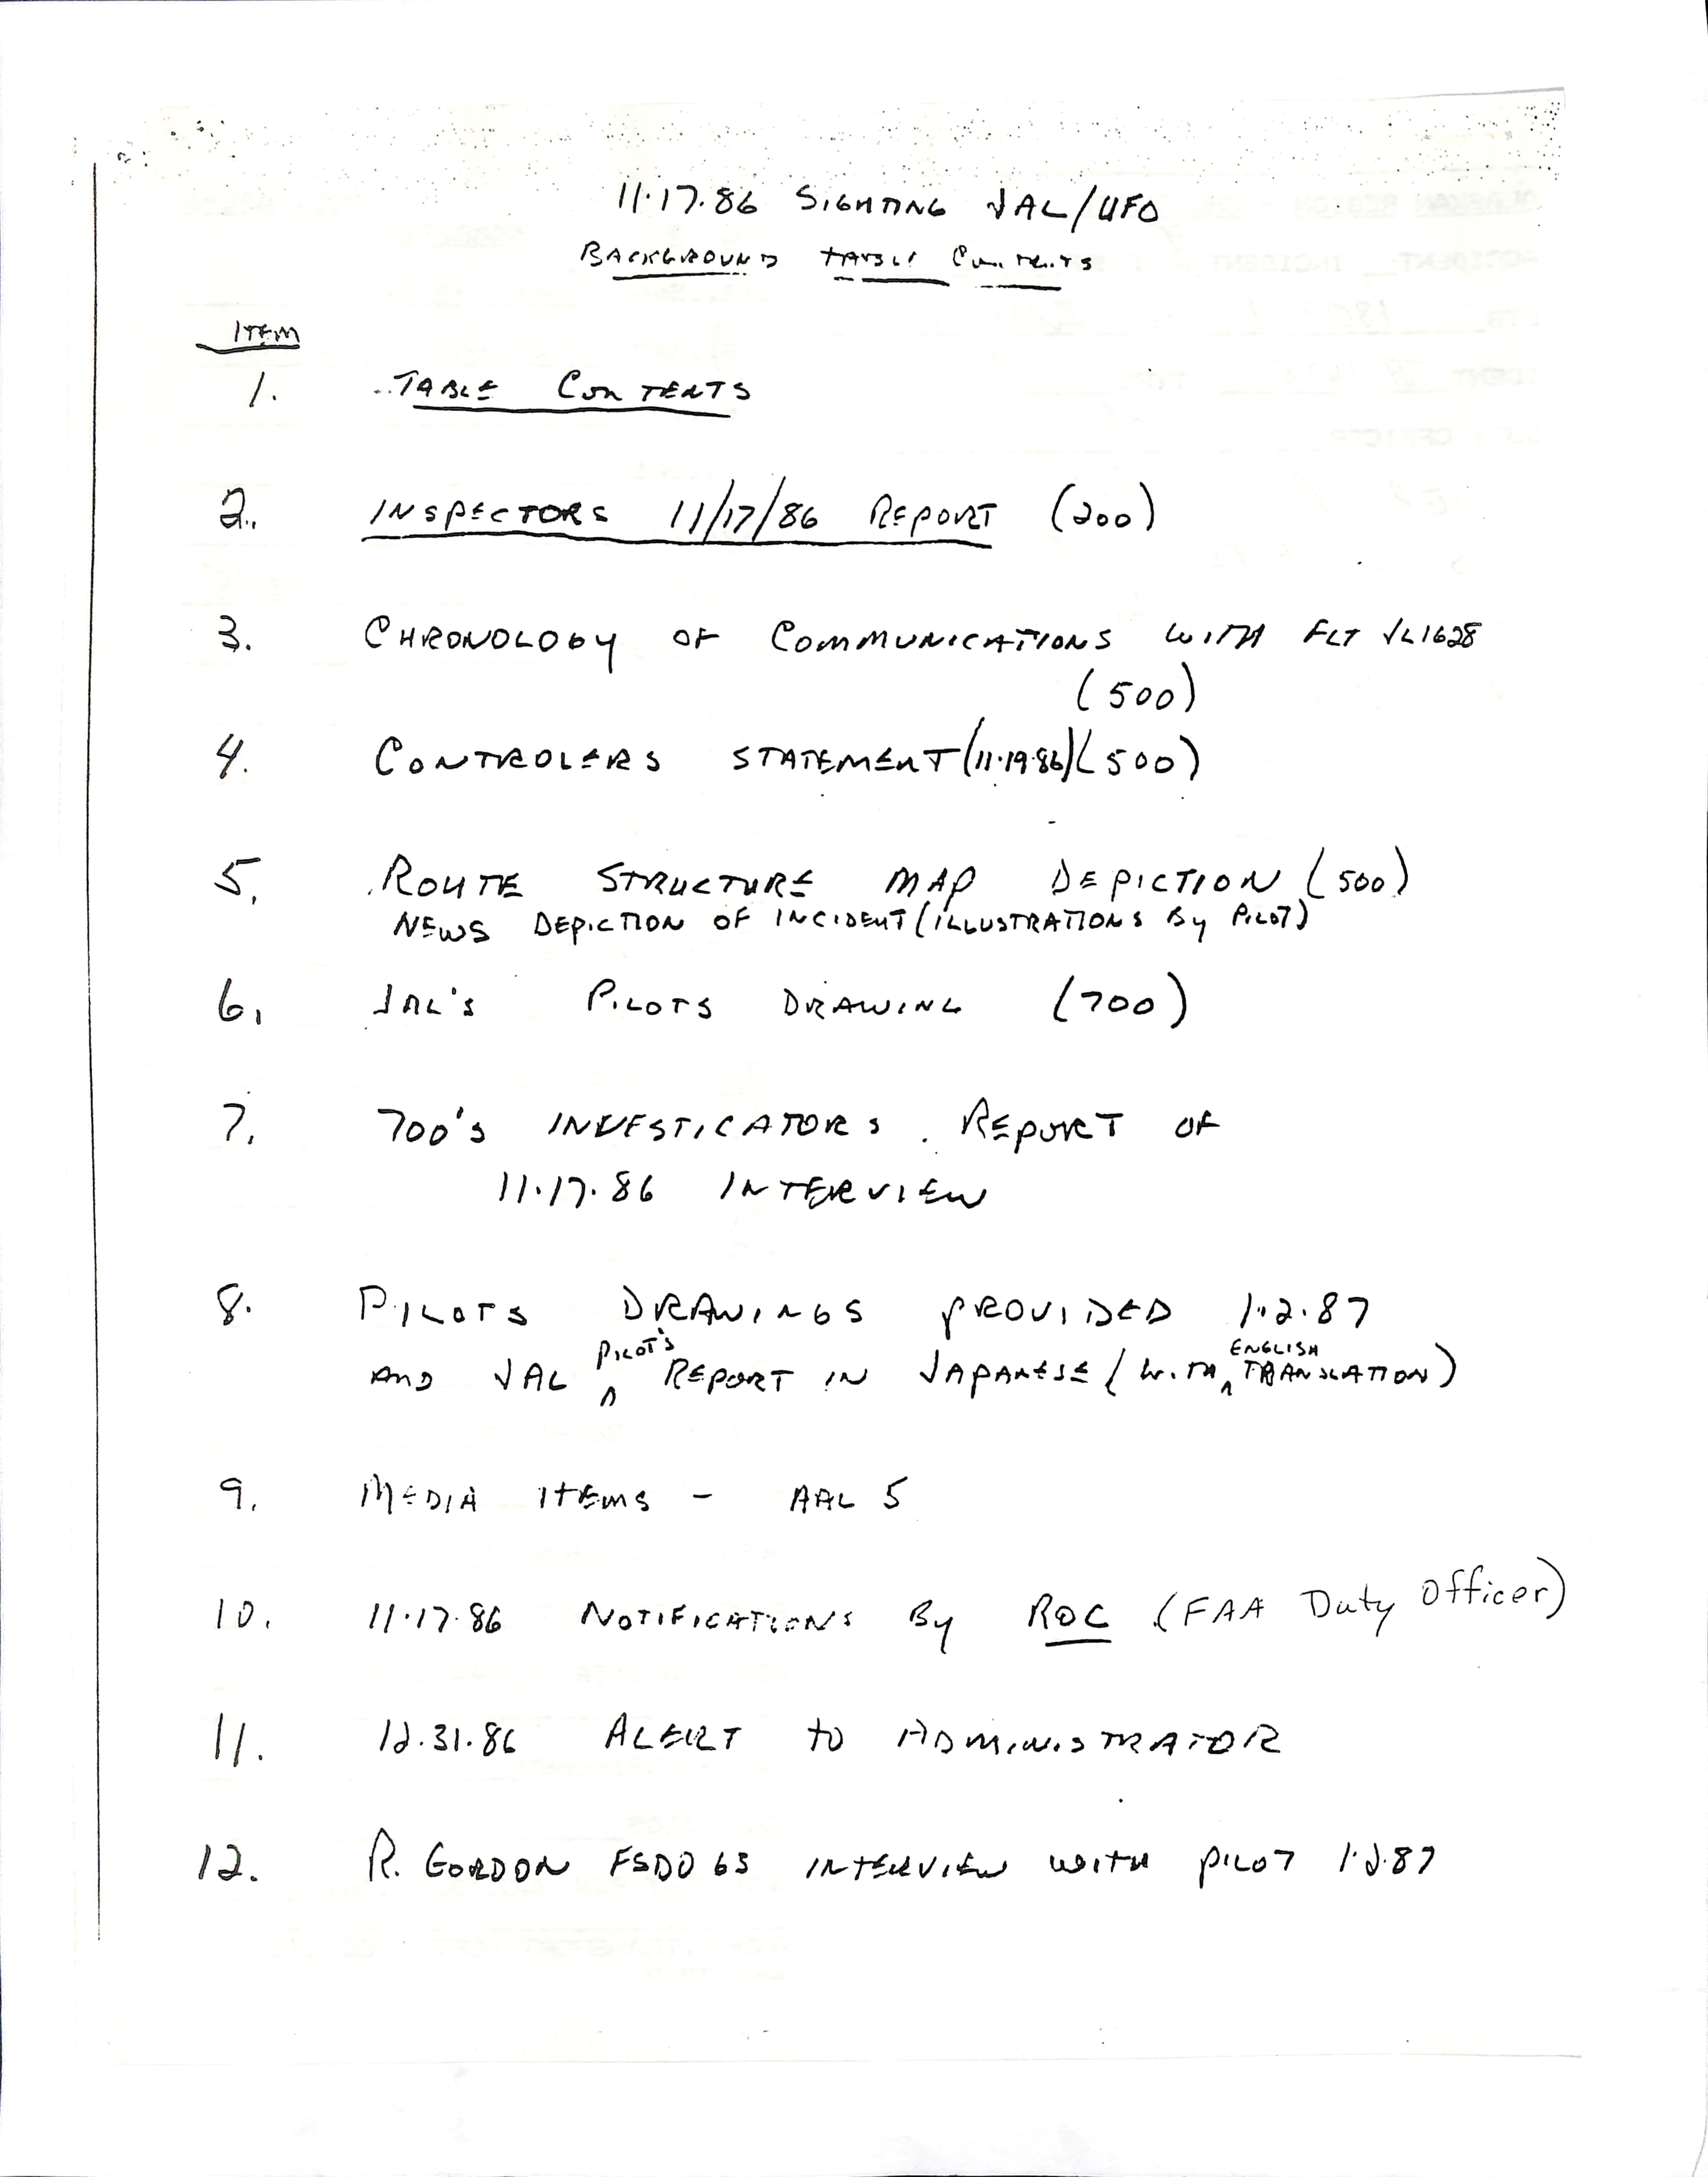 11.17.86 SIGHTING JAL/UFO
BACKGROUND TABLE CONTENTS
ITEM
1. TABLE CONTENTS
2. INSPECTORS 11/17/86 REPORT (200)
3. CHRONOLOGY OF COMMUNICATIONS WITH FLT JL1628
(500)
4. CONTROLERS STATEMENT (11.19.86) (500)
5. ROUTE STRUCTURE MAP DEPICTION (500)
NEWS DEPICTION OF INCIDENT (ILLUSTRATIONS BY PILOT)
6. JAL'S PILOTS DRAWING (700)
7. 700'S INVESTIGATORS REPORT OF
11.17.86 INTERVIEW
8. PILOTS DRAWINGS PROVIDED 1.2.87
AND JAL PILOT'S REPORT IN JAPANESE (WITH ENGLISH TRANSLATION)
9. MEDIA ITEMS - AAL 5
10. 11.17.86 NOTIFICATIONS By ROC (FAA Duty Officer)
11. 12.31.86 ALERT to ADMINISTRATOR
12. R. GORDON FSDO 63 INTERVIEW WITH PILOT 1.2.87